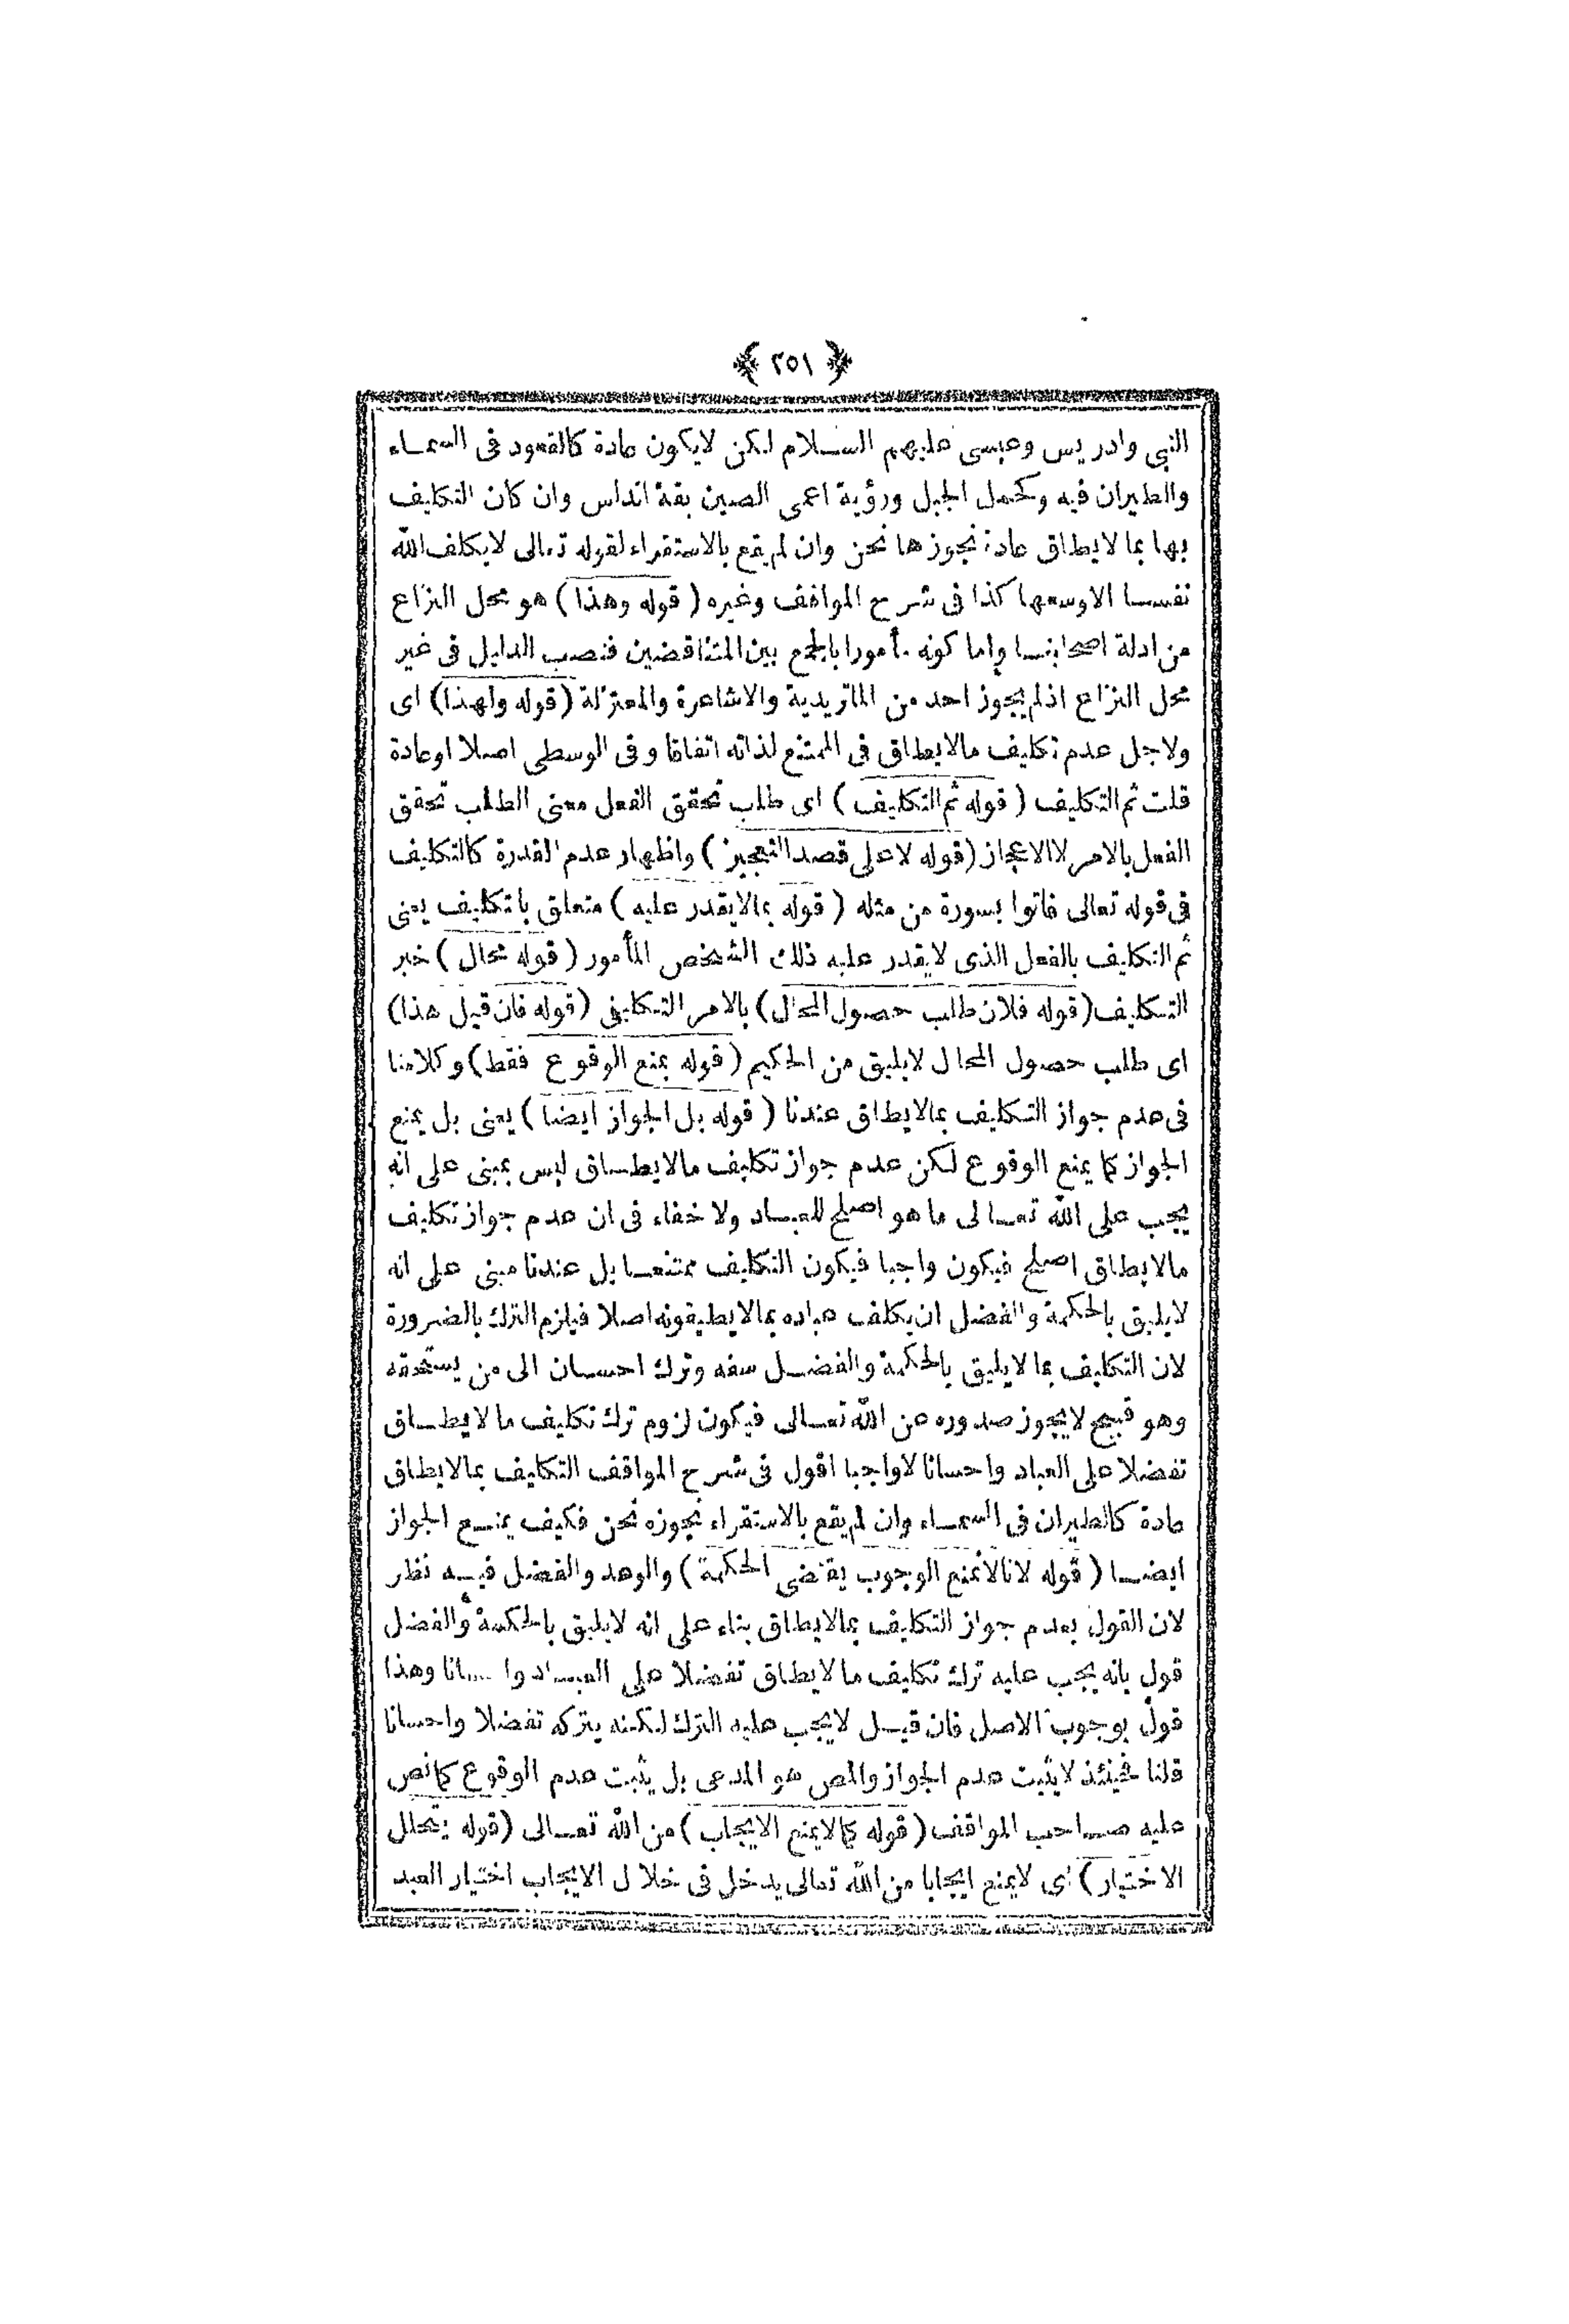 ﴿ ٢٥١ ﴾
النبى وادريس وعيسى عليهم السلام لكن لايكون عادة كالقعود فى السماء
والطيران فيه وكحمل الجبل ورؤية اعمى الصين بقة اندلس وان كان التكليف
بها بما لايطاق عادة نجوزها نحن وان لم يقع بالاستقراء لقوله تعالى لايكلف الله
نفسا الاوسعها كذا فى شرح المواقف وغيره ( قوله وهذا ) هو محل النزاع
من ادلة اصحابنا واما كونه مأمورا بالجمع بين المتناقضين فنصب الدليل فى غير
محل النزاع اذلم يجوز احد من الماتريدية والاشاعرة والمعتزلة ( قوله ولهذا ) اى
ولاجل عدم تكليف مالايطاق فى الممتنع لذاته اتفاقا وفى الوسطى اصلا اوعادة
قلت ثم التكليف ( قوله ثم التكليف ) اى طلب تحقق الفعل معنى الطلب تحقق
الفعل بالامر لاالاعجاز ( قوله لاعلى قصد التعجيز ) واظهار عدم القدرة كالتكليف
فى قوله تعالى فاتوا بسورة من مثله ( قوله بمالايقدر عليه ) متعلق باتكليف يعنى
ثم التكليف بالفعل الذى لايقدر عليه ذلك الشخص المأمور ( قوله محال ) خبر
التكليف ( قوله فلان طلب حصول المحال ) بالامر التكليفى ( قوله فان قيل هذا )
اى طلب حصول المحال لايليق من الحكيم ( قوله يمنع الوقوع فقط ) وكلامنا
فى عدم جواز التكليف بمالايطاق عندنا ( قوله بل الجواز ايضا ) يعنى بل يمنع
الجواز كما يمنع الوقوع لكن عدم جواز تكليف مالايطاق ليس بمبنى على انه
يجب على الله تعالى ما هو اصلح للعباد ولا خفاء فى ان عدم جواز تكليف
مالايطاق اصلح فيكون واجبا فيكون التكليف ممتنعا بل عندنا مبنى على انه
لايليق بالحكمة والفضل ان يكلف عباده بمالايطيقونه اصلا فيلزم الترك بالضرورة
لان التكليف بما لايليق بالحكمة والفضل سفه وترك احسان الى من يستحقه
وهو قبيح لايجوز صدوره عن الله تعالى فيكون لزوم ترك تكليف ما لايطاق
تفضلا على العباد واحسانا لاواجبا اقول فى شرح المواقف التكليف بمالايطاق
عادة كالطيران فى السماء وان لم يقع بالاستقراء نجوزه نحن فكيف يمنع الجواز
ايضا ( قوله لانالانمنع الوجوب يقتضى الحكمة ) والوعد والفضل فيه نظر
لان القول بعدم جواز التكليف بمالايطاق بناء على انه لايليق بالحكمة والفضل
قول بانه يجب عليه ترك تكليف ما لايطاق تفضلا على العباد وا انا وهذا
قول بوجوب الاصل فان قيل لايجب عليه الترك لكنه يتركه تفضلا واحسانا
قلنا فحينئذ لايثبت عدم الجواز والمص هو المدعى بل يثبت عدم الوقوع كمانص
عليه صاحب المواقف ( قوله كمالايمنع الايجاب ) من الله تعالى ( قوله يتخلل
الاختيار ) اى لايمنع ايجابا من الله تعالى يدخل فى خلال الايجاب اختيار العبد